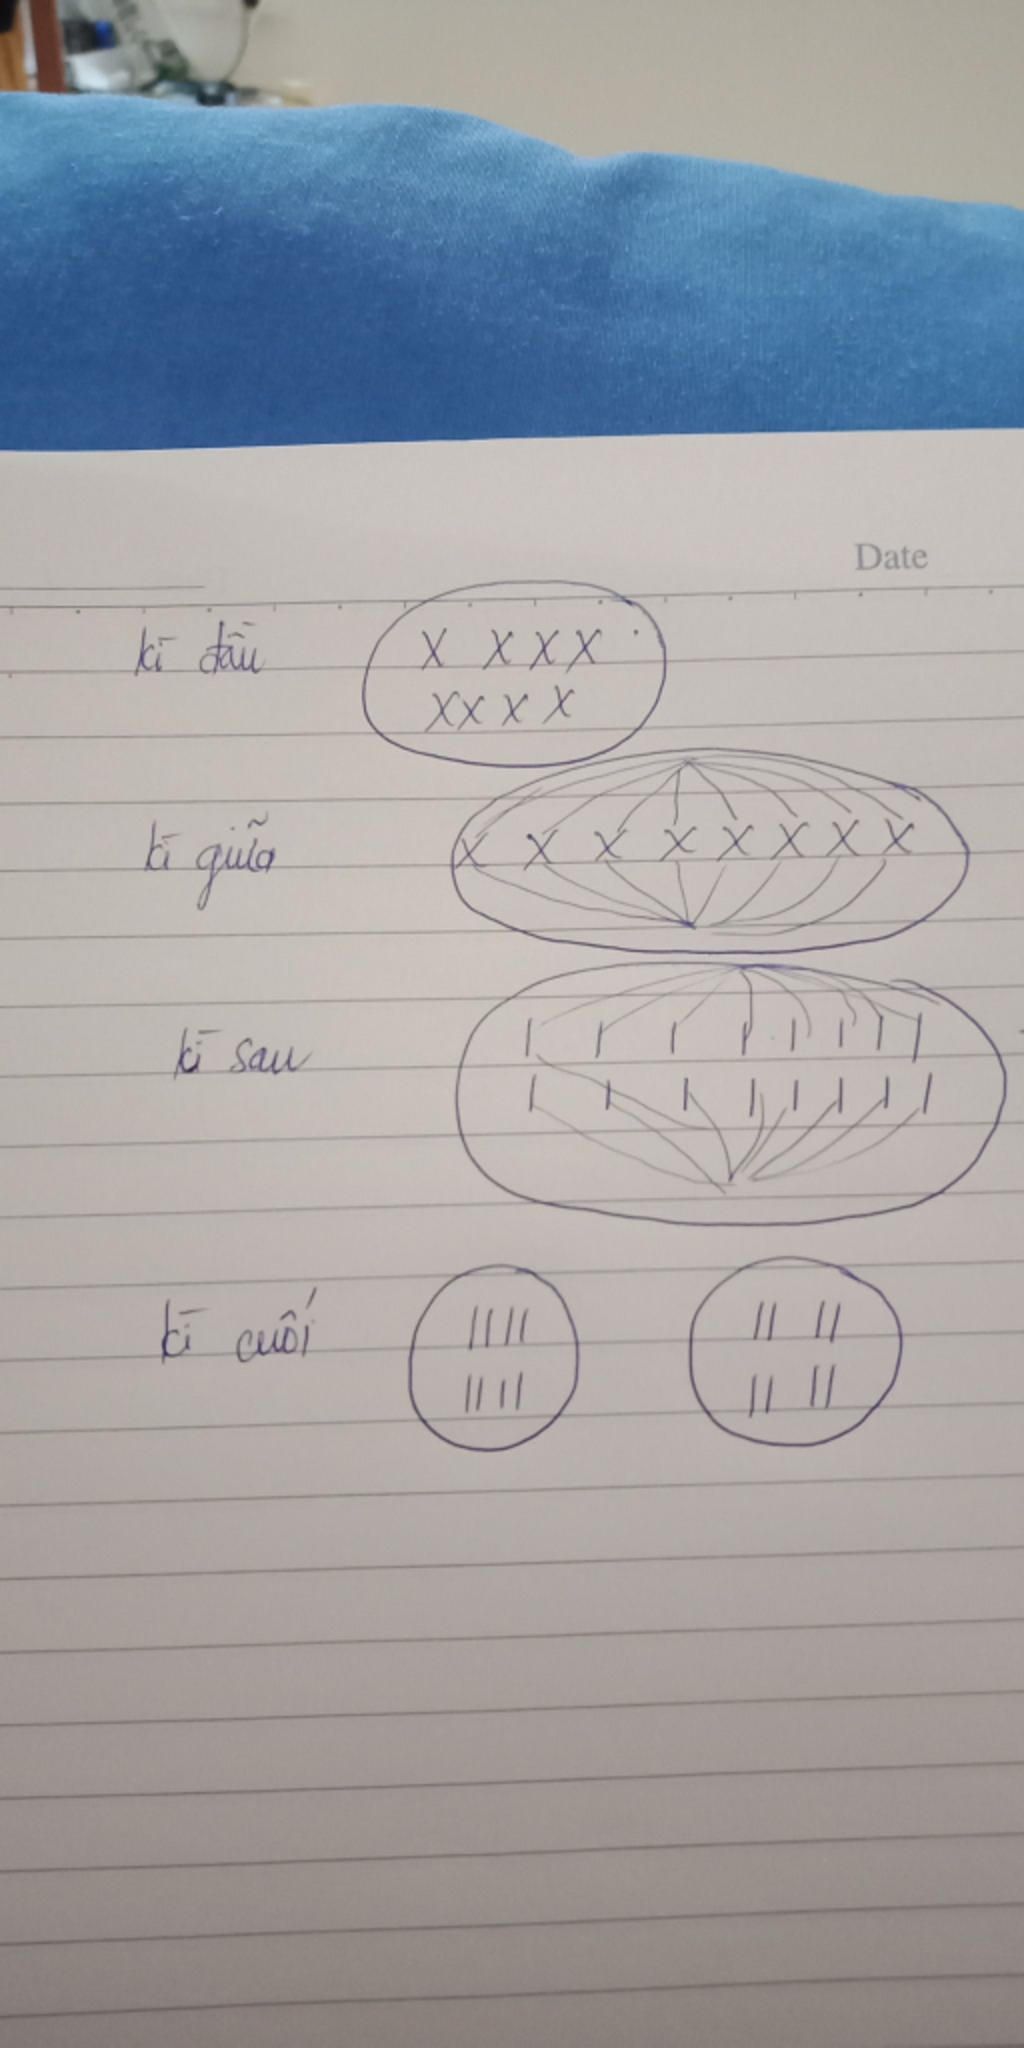 Date
kì đầu
X X X X
X X X X
kì giữa
X X X X X X X X
kì sau
kì cuối